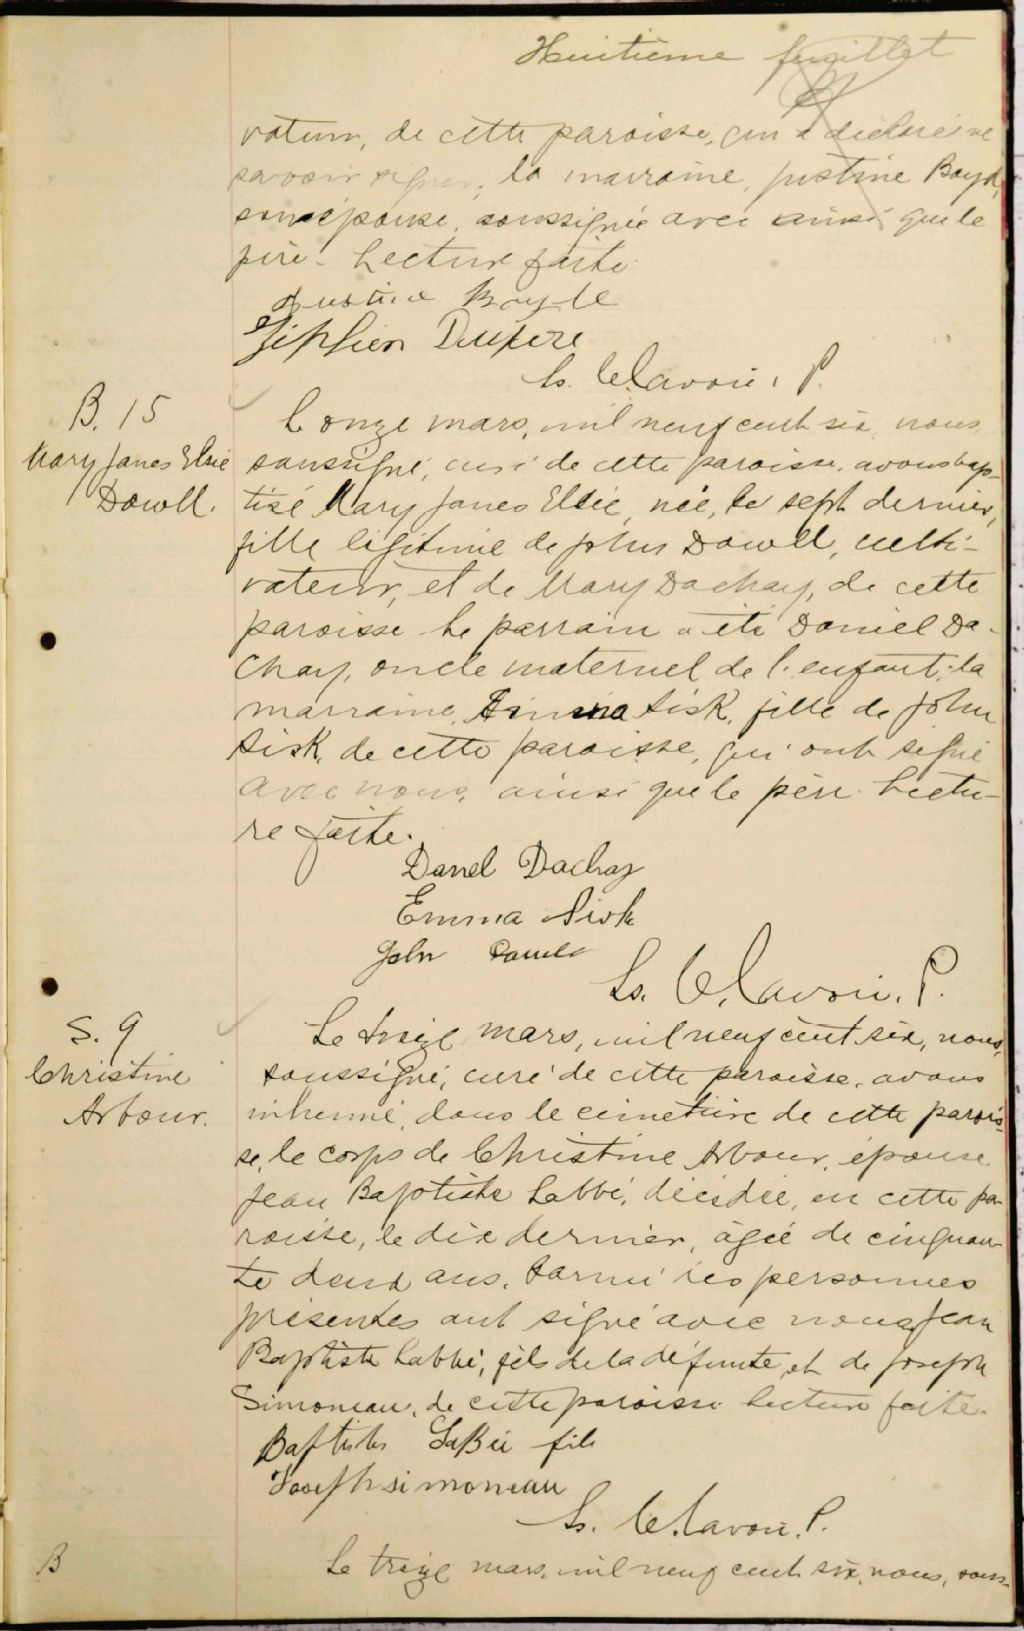 Huitième feuillet
vateur, de cette paroisse, qui a déclaré ne
savoir signer, la marraine, Justine Boyd,
son épouse, soussignée avec ainsi que le
père. Lecture faite.
Justine Boyle
Dupere
Ls. C. Lavoie, P.
B. 15
Mary Janes Elsie
Dowll.
Le onze mars, mil neuf cent six, nous,
soussigné, curé de cette paroisse, avons bap-
tisé Mary Janes Elsie, née, le sept dernier,
fille légitime de John Dowll, culti-
vateur, et de Mary Dachay, de cette
paroisse. Le parrain a été Daniel Da-
chay, oncle maternel de l'enfant; la
marraine, Emma Sisk, fille de John
Sisk, de cette paroisse, qui ont signé
avec nous, ainsi que le père. Lectu-
re faite.
Danel Dachay
Emma Sisk
John
Ls. C. Lavoie, P.
S. 9
Christine
Arbour.
Le treize mars, mil neuf cent six, nous,
soussigné, curé de cette paroisse, avons
inhumé, dans le cimetière de cette parois-
se, le corps de Christine Arbour, épouse
Jean Baptiste Labbé, décédée, en cette pa-
roisse, le dix dernier, âgée de cinquan-
te deux ans. Parmi les personnes
présentes ont signé avec nous Jean
Baptiste Labbé, fils de la défunte, et de Joseph
Simoneau, de cette paroisse. Lecture faite.
Baptiste LaBée fils
Joseph simoneau
Ls. C. Lavoie, P.
B
Le treize mars, mil neuf cent six, nous, sous-